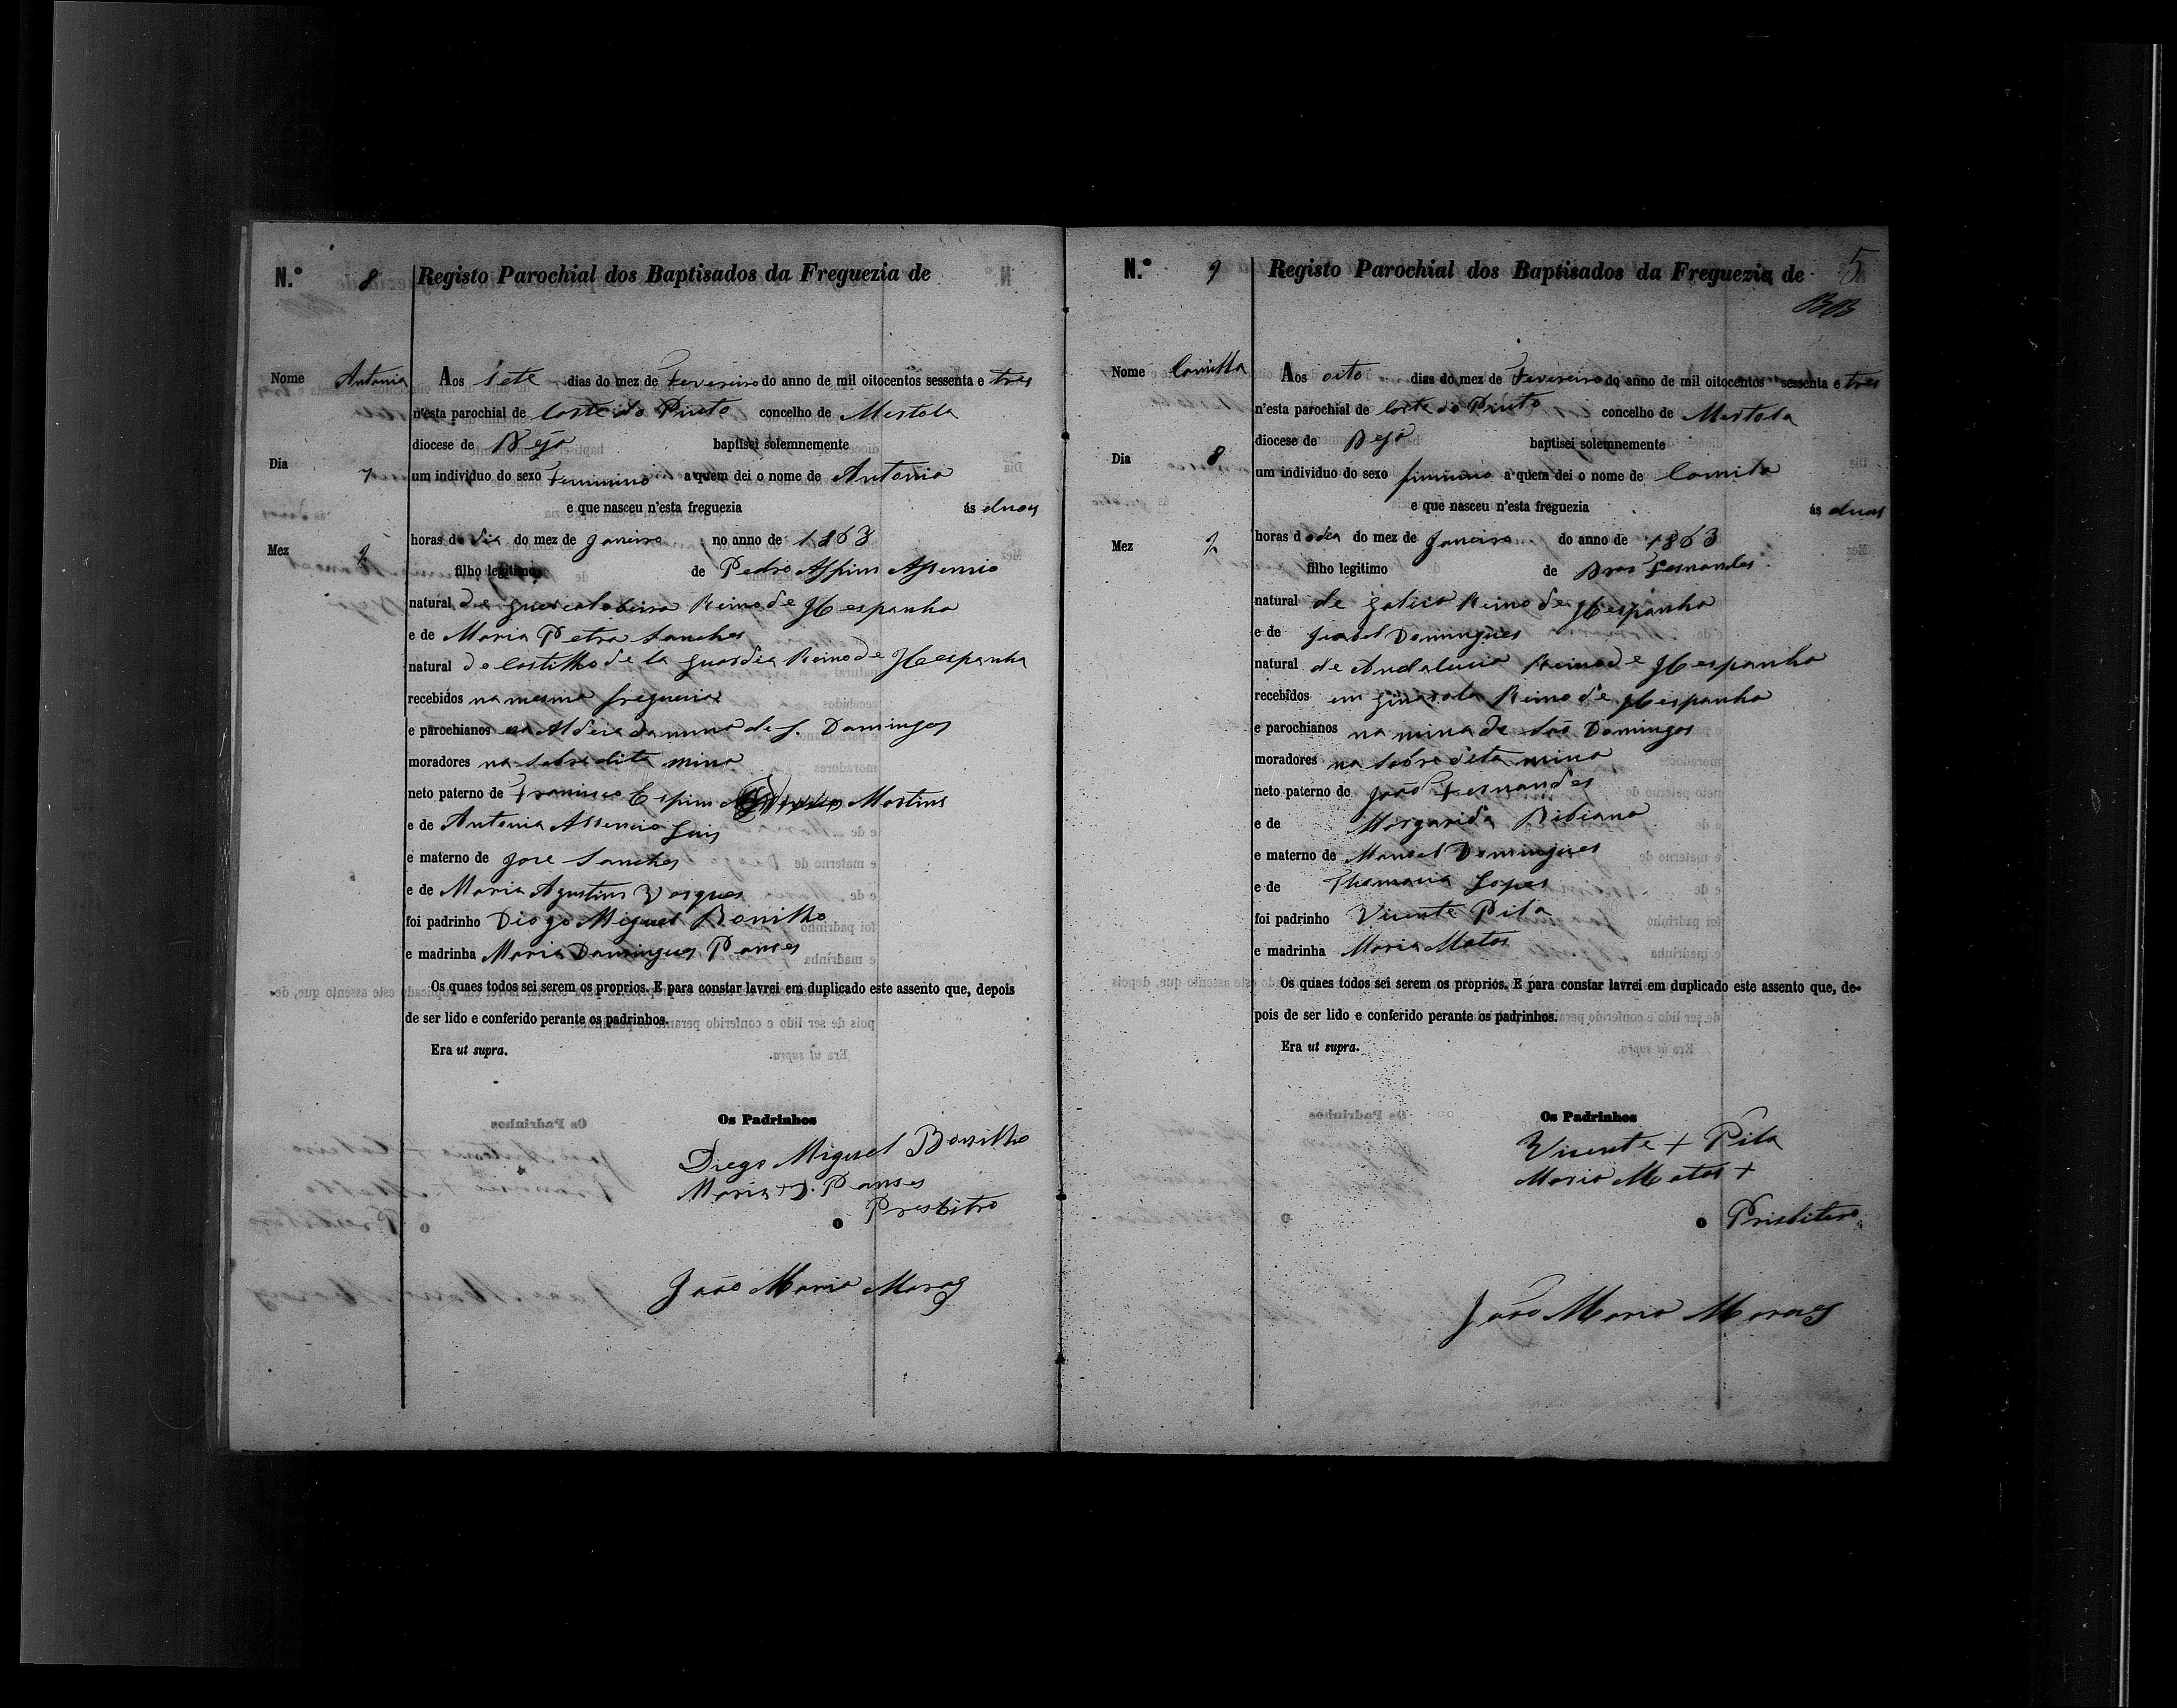 N.º 8 Registo Parochial dos Baptisados da Freguezia de
Nome Antonia Aos sete dias do mez de Fevereiro do anno de mil oitocentos sessenta e tres
n'esta parochial de Corte do Pinto concelho de Mertola
diocese de Beja baptisei solemnemente
Dia 7 um individuo do sexo Feminino a quem dei o nome de Antonia
e que nasceu n'esta freguezia ás duas
Mez 2 horas do dia do mez de Janeiro no anno de 1863
filho legitimo de Pedro Aspim Assencio
natural de Reino de Hespanha
e de Maria Petra Sanches
natural de Castilho de la Guardia Reino de Hespanha
recebidos na mesma freguezia
e parochianos na Aldeia da mina de S. Domingos
moradores na sobredita mina
neto paterno de Francisco Espim Martins
e de Antonia Assencio Luis
e materno de José Sanches
e de Maria Agustins Vasques
foi padrinho Diogo Miguel Bonilho
e madrinha Maria Domingues Panses
Os quaes todos sei serem os proprios. E para constar lavrei em duplicado este assento que, depois
de ser lido e conferido perante os padrinhos.
Era ut supra.
Os Padrinhos
Diego Miguel Bonilho
Maria + D. Panses
o Presbitro
João Maria Moraes
5
N.º 9 Registo Parochial dos Baptisados da Freguezia de
Nome Comilla Aos oito dias do mez de Fevereiro do anno de mil oitocentos sessenta e tres
n'esta parochial de Corte do Pinto concelho de Mertola
diocese de Beja baptisei solemnemente
Dia 8 um individuo do sexo feminino a quem dei o nome de Comila
e que nasceu n'esta freguezia ás duas
Mez 2 horas do dia do mez de Janeiro do anno de 1863
filho legitimo de Bras Fernandes
natural de Galica Reino de Hespanha
e de Isabel Domingues
natural de Andalucia Reino de Hespanha
recebidos em Reino de Hespanha
e parochianos na mina de São Domingos
moradores na sobredita mina
neto paterno de João Fernandes
e de Margarida Bibiana
e materno de Manoel Domingues
e de Thomasia Lopes
foi padrinho Vicente Pila
e madrinha Maria Matos
Os quaes todos sei serem os proprios. E para constar lavrei em duplicado este assento que, de-
pois de ser lido e conferido perante os padrinhos.
Era ut supra.
Os Padrinhos
Vicente + Pila
Maria Matos +
o Prisbitero
João Maria Moraes